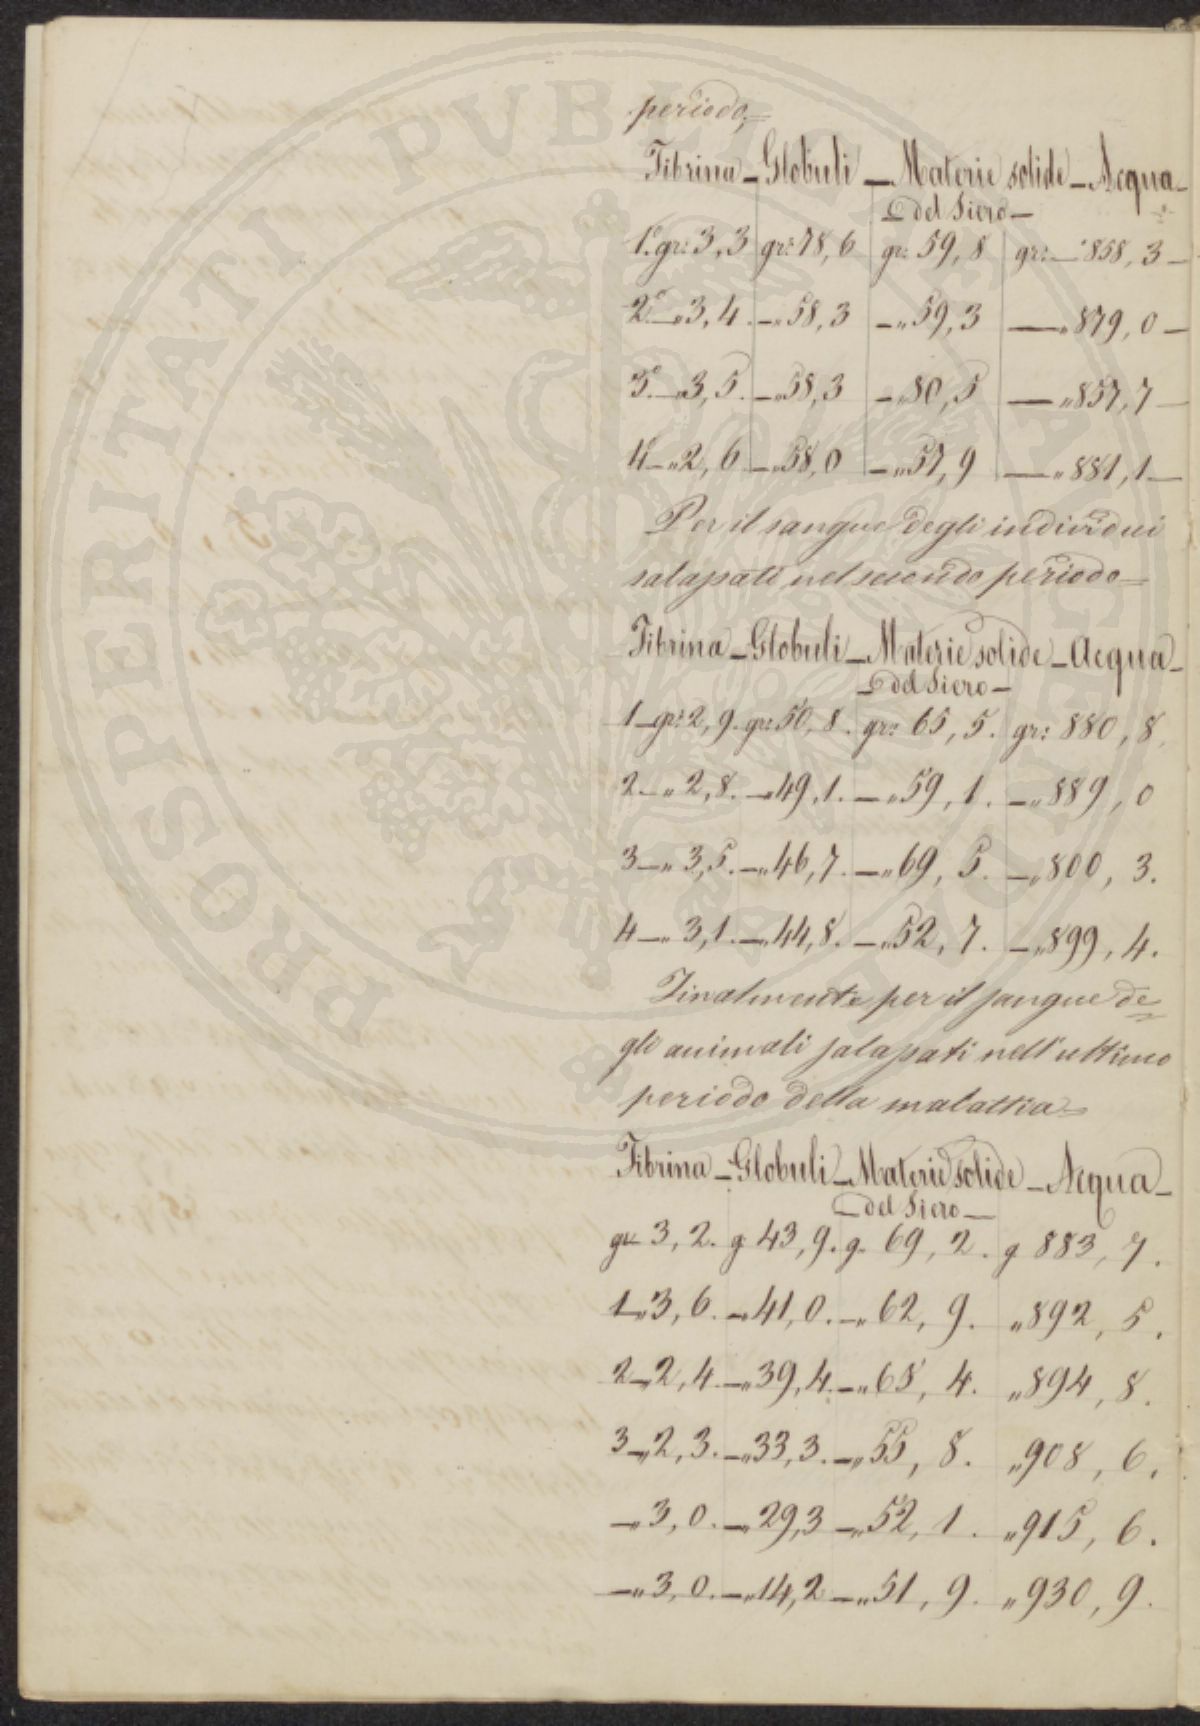 periodo,=
Fibrina – Globuli – Materie solide – Acqua –
del Siero –
1.° gr: 3,3 gr: 78,6 gr: 59,8 gr: — 858,3 –
2.° —" 3,4. —" 58,3 —" 59,3 —" 879,0 –
3.° —" 3,5. —" 58,3 —" 80,5 —" 857,7 –
4.° —" 2,6 —" 58,0 —" 57,9 —" 881,1 –
Per il sangue degli individui
salapati nel secondo periodo =
Fibrina – Globuli – Materie solide – Acqua –
del Siero –
1 – gr: 2,9. gr: 50,8. gr: 65,5. gr: 880,8.
2 —" 2,8. —" 49,1. —" 59,1. —" 889,0
3 —" 3,5. —" 46,7. —" 69,5. —" 800,3.
4 —" 3,1. —" 44,8. —" 52,7. —" 899,4.
Finalmente per il sangue de=
gli animali salapati nell'ultimo
periodo della malattia =
Fibrina – Globuli – Materie solide – Acqua –
del Siero –
gr 3,2. g 43,9. g. 69,2. g 883,7.
1 —" 3,6. —" 41,0. —" 62,9. " 892,5.
2 —" 2,4. —" 39,4. —" 63,4. " 894,8.
3 —" 2,3. —" 33,3. —" 55,8. " 908,6.
—" 3,0. —" 29,3 —" 52,1. " 915,6.
—" 3,0. —" 14,2 —" 51,9. " 930,9.
PUBLICAE
PROSPERITATI